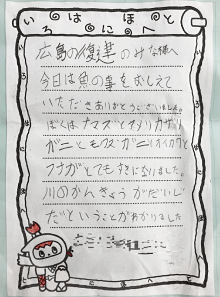 い は ほ と
ろ に へ
広島の復建のみな様へ
今日は魚の事をおしえて
いただきありがとうございました。
ぼくはナマズと
ガニとモクズガニとオイカワと
フナがとてもすきになりました。
川のかんきょうがだいじ
だということがわかりました